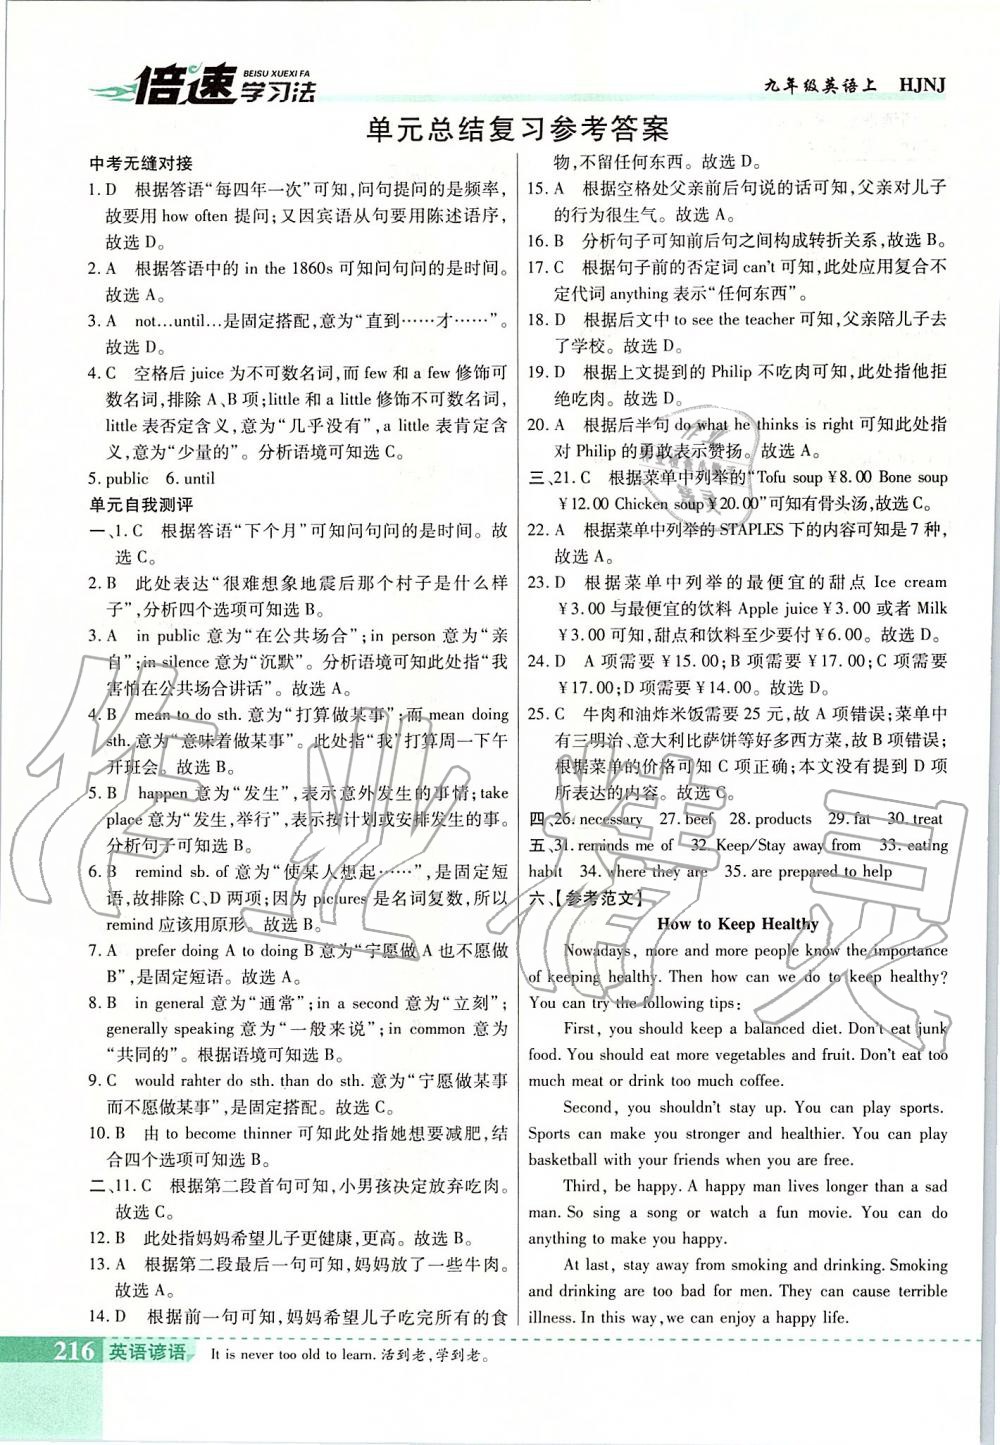 倍速
BEISU XUEXI FA
学习法
九年级英语上 HJNJ
单元总结复习参考答案
中考无缝对接
1. D 根据答语“每四年一次”可知,问句提问的是频率,
故要用 how often 提问;又因宾语从句要用陈述语序,
故选 D。
2. A 根据答语中的 in the 1860s 可知问句问的是时间。
故选 A。
3. A not…until…是固定搭配,意为“直到……才……”。
故选 D。
4. C 空格后 juice 为不可数名词,而 few 和 a few 修饰可
数名词,排除 A、B 项;little 和 a little 修饰不可数名词,
little 表否定含义,意为“几乎没有”,a little 表肯定含
义,意为“少量的”。分析语境可知选 C。
5. public 6. until
单元自我测评
一、1. C 根据答语“下个月”可知问句问的是时间。故
选 C。
2. B 此处表达“很难想象地震后那个村子是什么样
子”,分析四个选项可知选 B。
3. A in public 意为“在公共场合”;in person 意为“亲
自”;in silence 意为“沉默”。分析语境可知此处指“我
害怕在公共场合讲话”。故选 A。
4. B mean to do sth. 意为“打算做某事”;而 mean doing
sth. 意为“意味着做某事”。此处指“我”打算周一下午
开班会。故选 B。
5. B happen 意为“发生”,表示意外发生的事情;take
place 意为“发生,举行”,表示按计划或安排发生的事。
分析句子可知选 B。
6. B remind sb. of 意为“使某人想起……”,是固定短
语,故排除 C、D 两项;因为 pictures 是名词复数,所以
remind 应该用原形。故选 B。
7. A prefer doing A to doing B 意为“宁愿做 A 也不愿做
B”,是固定短语。故选 A。
8. B in general 意为“通常”;in a second 意为“立刻”;
generally speaking 意为“一般来说”;in common 意为
“共同的”。根据语境可知选 B。
9. C would rahter do sth. than do sth. 意为“宁愿做某事
而不愿做某事”,是固定搭配。故选 C。
10. B 由 to become thinner 可知此处指她想要减肥,结
合四个选项可知选 B。
二、11. C 根据第二段首句可知,小男孩决定放弃吃肉。
故选 C。
12. B 此处指妈妈希望儿子更健康,更高。故选 B。
13. A 根据第二段最后一句可知,妈妈放了一些牛肉。
故选 A。
14. D 根据前一句可知,妈妈希望儿子吃完所有的食
物,不留任何东西。故选 D。
15. A 根据空格处父亲前后句说的话可知,父亲对儿子
的行为很生气。故选 A。
16. B 分析句子可知前后句之间构成转折关系,故选 B。
17. C 根据句子前的否定词 can't 可知,此处应用复合不
定代词 anything 表示“任何东西”。
18. D 根据后文中 to see the teacher 可知,父亲陪儿子去
了学校。故选 D。
19. D 根据上文提到的 Philip 不吃肉可知,此处指他拒
绝吃肉。故选 D。
20. A 根据后半句 do what he thinks is right 可知此处指
对 Philip 的勇敢表示赞扬。故选 A。
三、21. C 根据菜单中列举的“Tofu soup ¥8.00 Bone soup
¥12.00 Chicken soup ¥20.00”可知有骨头汤,故选 C。
22. A 根据菜单中列举的 STAPLES 下的内容可知是 7 种,
故选 A。
23. D 根据菜单中列举的最便宜的甜点 Ice cream
¥3.00 与最便宜的饮料 Apple juice ¥3.00 或者 Milk
¥3.00 可知,甜点和饮料至少要付 ¥6.00。故选 D。
24. D A 项需要 ¥15.00;B 项需要 ¥17.00;C 项需要
¥17.00;D 项需要 ¥14.00。故选 D。
25. C 牛肉和油炸米饭需要 25 元,故 A 项错误;菜单中
有三明治、意大利比萨饼等好多西方菜,故 B 项错误;
根据菜单的价格可知 C 项正确;本文没有提到 D 项
所表达的内容。故选 C。
四、26. necessary 27. beef 28. products 29. fat 30. treat
五、31. reminds me of 32. Keep/Stay away from 33. eating
habit 34. where they are 35. are prepared to help
六、【参考范文】
How to Keep Healthy
Nowadays, more and more people know the importance
of keeping healthy. Then how can we do to keep healthy?
You can try the following tips:
First, you should keep a balanced diet. Don't eat junk
food. You should eat more vegetables and fruit. Don't eat too
much meat or drink too much coffee.
Second, you shouldn't stay up. You can play sports.
Sports can make you stronger and healthier. You can play
basketball with your friends when you are free.
Third, be happy. A happy man lives longer than a sad
man. So sing a song or watch a fun movie. You can do
anything to make you happy.
At last, stay away from smoking and drinking. Smoking
and drinking are too bad for men. They can cause terrible
illness. In this way, we can enjoy a happy life.
216 英语谚语 It is never too old to learn. 活到老,学到老。
作业精灵